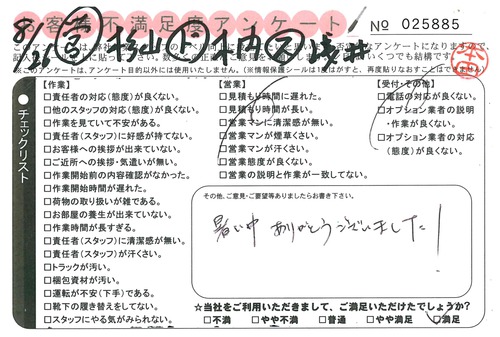 お客様不満足度アンケート
No 025885
8/25
チェックリスト
【作業】
□責任者の対応(態度)が良くない。
□他のスタッフの対応(態度)が良くない。
□作業を見ていて不安がある。
□責任者(スタッフ)に好感が持てない。
□お客様への挨拶が出来ていない。
□ご近所への挨拶・気遣いが無い。
□作業開始前の内容確認がなかった。
□作業開始時間が遅れた。
□荷物の取り扱いが雑である。
□お部屋の養生が出来ていない。
□作業時間が長すぎる。
□責任者(スタッフ)に清潔感が無い。
□責任者(スタッフ)が汗くさい。
□トラックが汚い。
□梱包資材が汚い。
□運転が不安(下手)である。
□靴下の履き替えをしてない。
□スタッフにやる気がみられない。
【営業】
□見積もり時間に遅れた。
□見積もり時間が長い。
□営業マンに清潔感が無い。
□営業マンが煙草くさい。
□営業マンが汗くさい。
□営業態度が良くない。
□営業の説明と作業が一致してない。
【受付・その他】
□電話の対応が良くない。
□オプション業者の説明・作業が良くない。
□オプション業者の対応(態度)が良くない。
その他、ご意見・ご要望等ありましたらお書き下さい。
暑い中 ありがとうございました!
☆当社をご利用いただきまして、ご満足いただけたでしょうか?
□不満 □やや不満 □普通 □やや満足 □満足